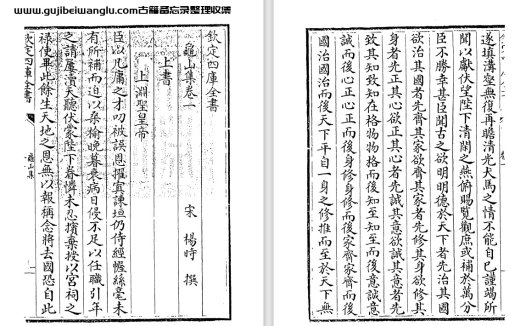 www.gujibeiwanglu.com古籍备忘录整理收集
欽定四庫全書
龜山集卷一
宋 楊時 撰
上書
上淵聖皇帝
臣以凡庸之才叨被誤恩擢寘諫垣仍侍經幄絲毫未
有所補而迫以桑榆晚暮衰病日侵不足以任職引年
之請屢瀆天聽伏蒙陛下眷憐未忍擯棄授以宮祠之
祿使畢此餘生天地之恩無以報稱念將去國恐自此
欽定四庫全書
龜山集
一
遂填溝壑無復再瞻清光犬馬之情不能自已謹端所
聞以獻伏望陛下清閒之燕俯賜覽觀庶或補於萬分
臣不勝幸甚臣聞古之欲明明德於天下者先治其國
欲治其國者先齊其家欲齊其家者先修其身欲修其
身者先正其心欲正其心者先誠其意欲誠其意者先
致其知致知在格物物格而後知至知至而後意誠意
誠而後心正心正而後身修身修而後家齊家齊而後
國治國治而後天下平自一身之修推而至於天下無